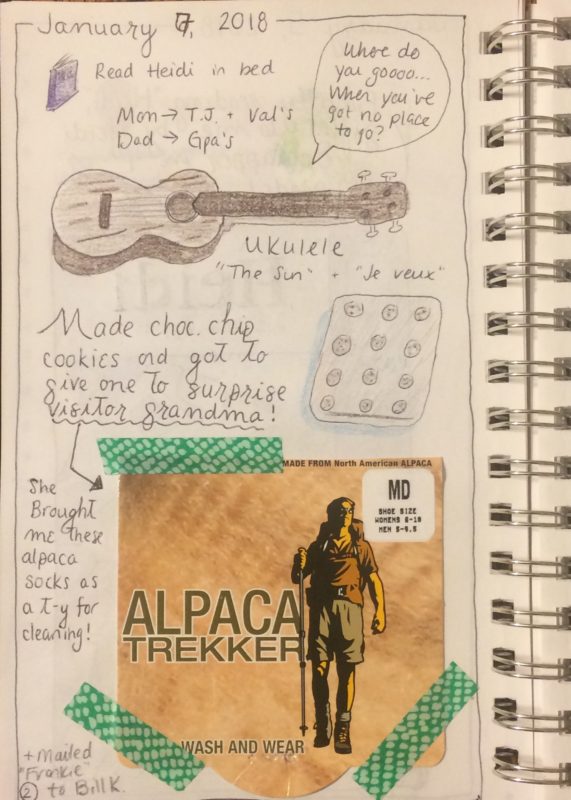 January 7, 2018
Read Heidi in bed
Mom → T.J. + Val's
Dad → Gpa's
Where do
you goooo...
When you've
got no place
to go?
Ukulele
"The Sun" + "Je veux"
Made choc. chip
cookies and got to
give one to surprise
visitor grandma!
She
Brought
me these
alpaca
socks as
a t-y for
cleaning!
MADE FROM North American ALPACA
MD
SHOE SIZE
WOMENS 6-10
MEN 5-9.5
ALPACA
TREKKER
WASH AND WEAR
+ Mailed
"Frankie"
② to Bill K.